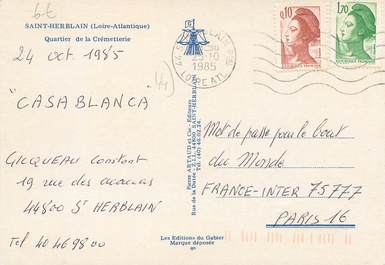 bt
SAINT-HERBLAIN (Loire-Atlantique)
Quartier de la Crémetterie
24 oct 1985
"CASABLANCA"
GICQUEAU Constant
19 rue des acacias
44800 St HERBLAIN
Tel 40 46 98 00
25-10
1985
LOIRE ATL
0,10
1,70
Pierre ARTAUD et Cie - Editeurs
Rue de la Dutée - Z.I.L. 44800 SAINT-HERBLAIN
Tél. (40) 46.02.24
Mot de passe pour le bout
du Monde
FRANCE-INTER 75777
PARIS 16
Les Editions du Gabier
Marque déposée